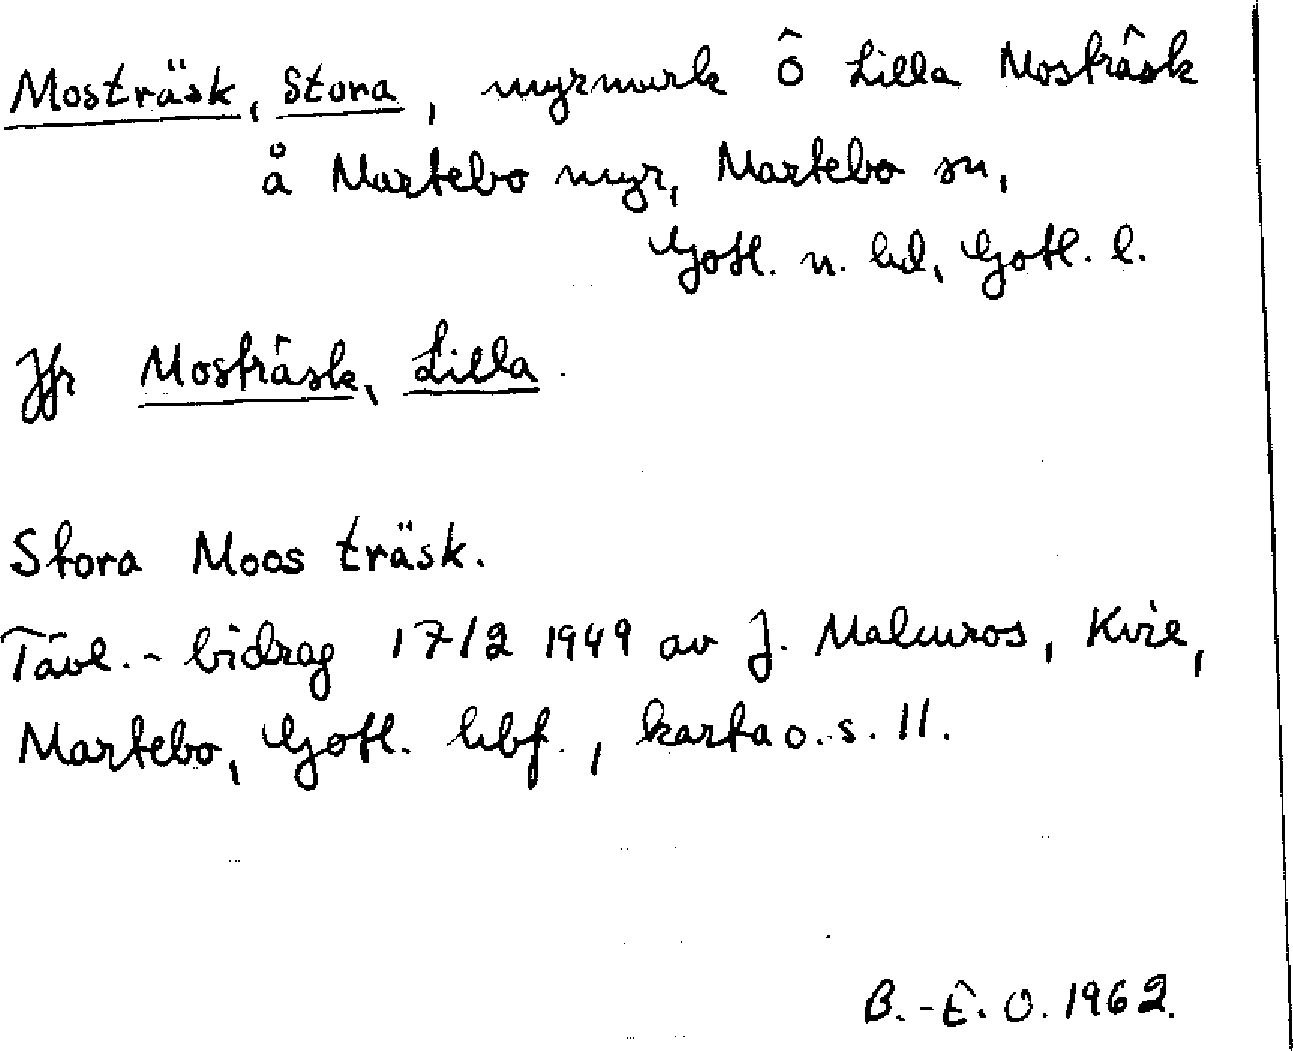 Mosträsk, Stora, myrmark Ö Lilla Mosträsk
å Martebo myr, Martebo sn,
Gotl. n. hd, Gotl. l.
Jfr Mosträsk, Lilla.
Stora Moos träsk.
Tävl.-bidrag 17/2 1949 av J. Malmros, Kvie,
Martebo, Gotl. hbf., karta o. s. 11.
B.-E. O. 1962.